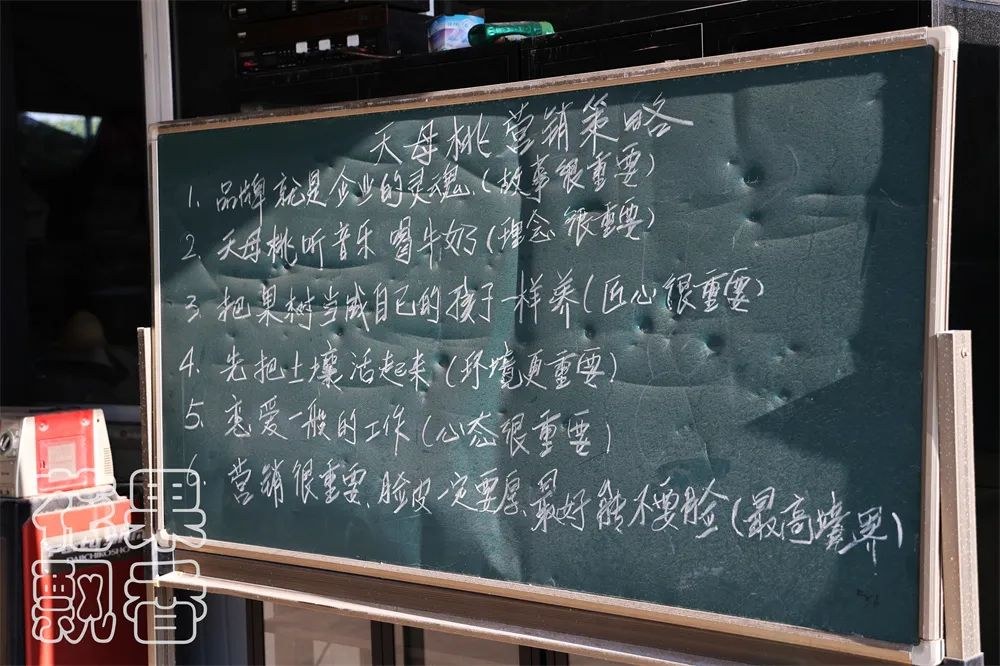 天母桃营销策略
1. 品牌就是企业的灵魂.(故事很重要)
2. 天母桃听音乐喝牛奶(理念很重要)
3. 把果树当成自己的孩子一样养(匠心很重要)
4. 先把土壤活起来(环境更重要)
5. 恋爱一般的工作(心态很重要)
营销很重要、脸皮一定要厚、最好能不要脸(最高境界)
DAIICHIKOSHO
花果
飘香